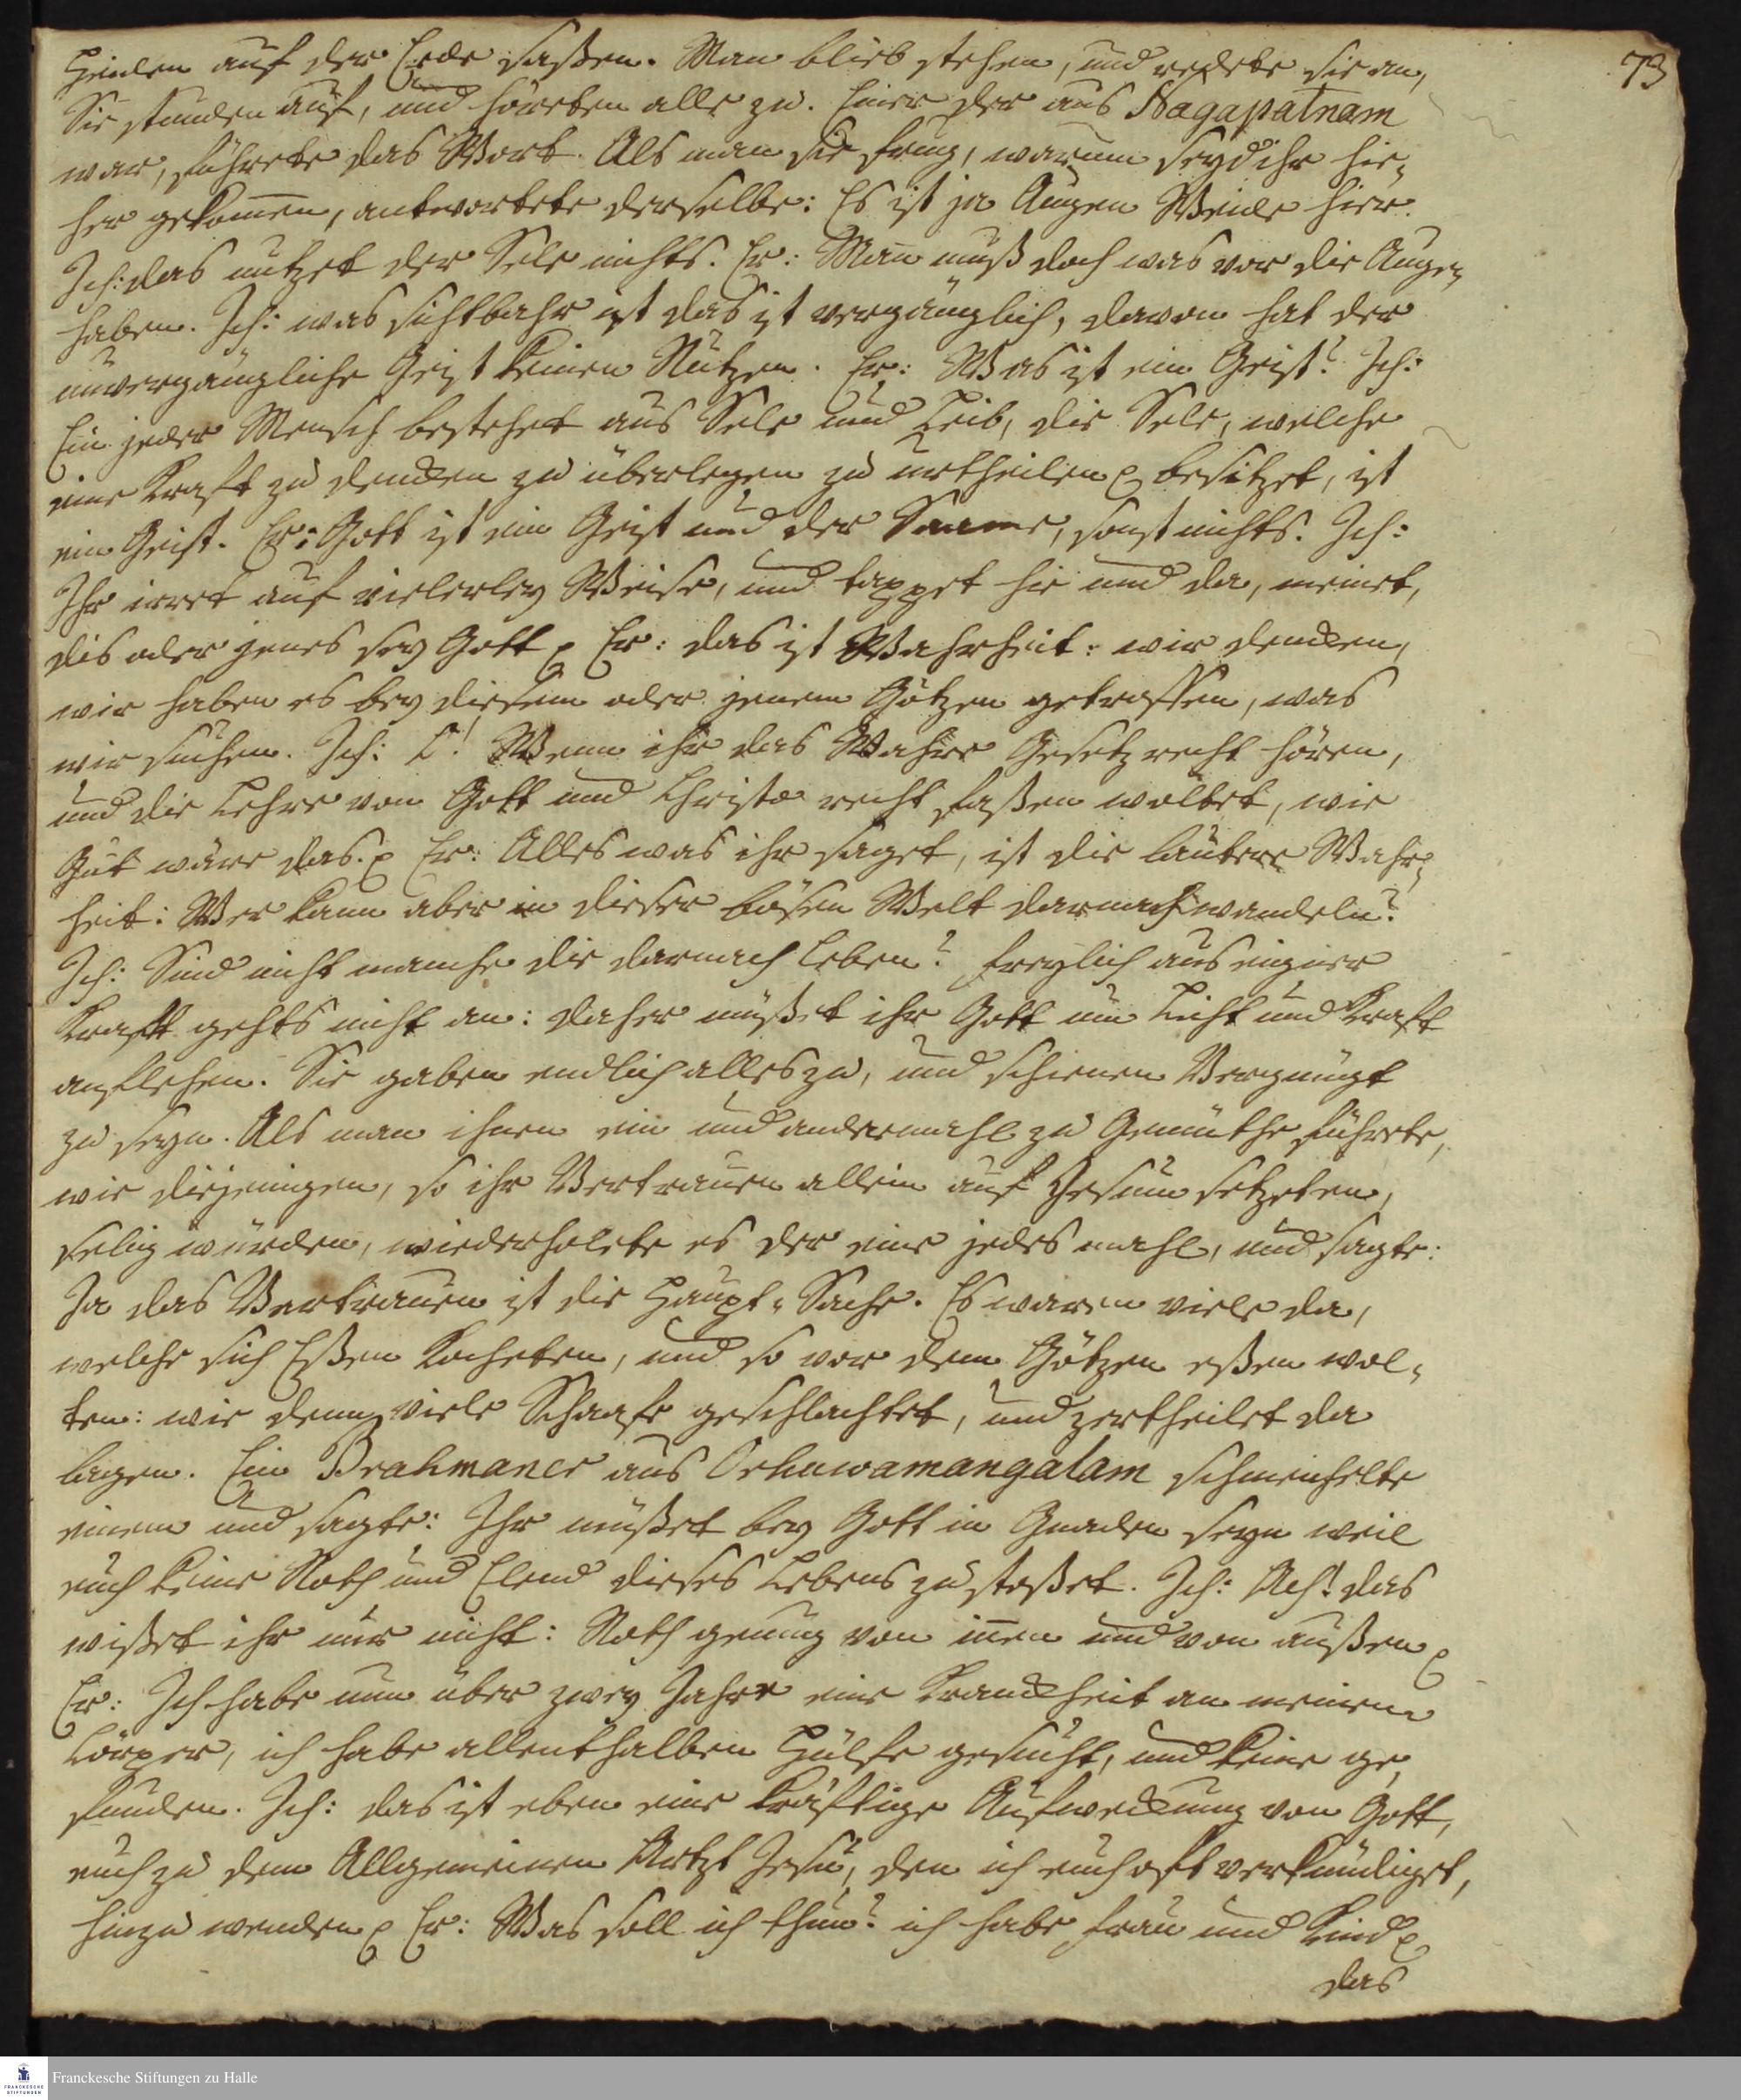 73
Heiden auf der Erde saßen. Man blieb stehen, und redete sie an,
Sie stunden auf, und höreten alle zu. Einer der aus Nagapatnam
war, führete das Wort. Als man sie frug, warum seyd ihr hie-
her gekom̄en, antwortete derselbe: Es ist ja Augen Weide hier.
Ich: das nutzet der Sele nichts. Er: Man muß doch was vor die Augen
haben. Ich: was sichtbahr ist das ist vergänglich, davon hat der
unvergängliche Geist keinen Nutzen. Er: Was ist ein Geist? Ich:
Ein jeder Mensch bestehet aus Sele und Leib, die Sele, welche
eine Kraft zu dencken zu überlegen zu urtheilen p besitzet, ist
ein Geist. Er: Gott ist ein Geist und der Saame, sonst nichts. Ich:
Ihr irret auf vielerley Weise, und tappet hie und da, meinet,
dis oder jenes sey Gott p Er: das ist Wahrheit: wir dencken,
wir haben es bey diesem oder jenem Götzen getroffen, was
wir suchen. Ich: O! Wenn ihr das Wahre Gesetz recht hören,
und die Lehre von Gott und Christo recht faßen woltet, wie
Gut wäre das. p Er: Alles was ihr saget, ist die lautere Wahr-
heit: Wer kann aber in dieser bösen Welt darnach wandeln?
Ich: Sind nicht manche die darnach leben? freylich aus eigner
Krafft gehts nicht an: daher müßet ihr Gott um Licht und Kraft
anflehen. Sie gaben endlich alles zu, und schienen Vergnügt
zu seyn. Als man ihnen ein und andermahl zu Gemüthe führete,
wie diejenigen, so ihr Vertrauen allein auf Jesum setzeten,
selig würden, wiederholete es der eine jedes mahl, und sagte:
Ja das Vertrauen ist die Haupt-Sache. Es waren viele da,
welche sich Eßen kocheten, und so vor dem Götzen eßen wol-
ten: wie denn viele Schaafe geschlachtet, und zertheilet da
lagen. Ein Brahmaner aus schmeichelte
einem und sagte: Ihr müßet bey Gott in Gnaden seyn weil
euch keine Noth und Elend dieses Lebens zu stoßet. Ich: Ach! das
wißet ihr nur nicht: Noth genung von in̄en und von außen p
Er: Ich habe nun über zwey Jahre eine Kranckheit an meinem
Cörper, ich habe allenthalben Hülfe gesucht, und keine ge-
funden. Ich: das ist eben eine kräftige Aufweckung von Gott,
euch zu dem Allgemeinen Artzt Jesu, den ich euch oft verkündiget,
hinzu wenden p Er: Was soll ich thun? ich habe frau und Kind p
das
Franckesche Stiftungen zu Halle
FRANCKESCHE
STIFTUNGEN